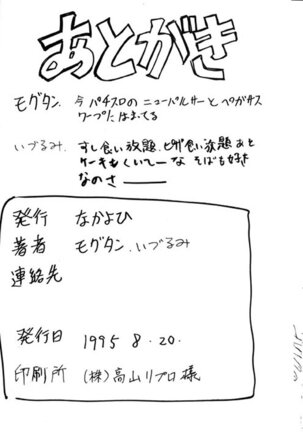 あとがき
モグタン. 今 パチスロの ニューパルサーと ペガサス
ワープにはまってる
いづるみ. すし食い放題、ピザ食い放題 あと
ケーキもくいてーな そばも好き
なのさ———
発行 なかよひ
著者 モグタン.いづるみ
連絡先
発行日 1995 8.20.
印刷所 (株)高山リプロ 様